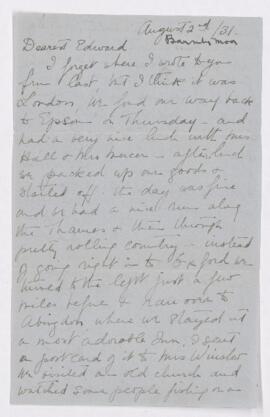 August 2nd /31.
Dearest Edward
I forget where I wrote to you
from last, but I think it was
London. We found our way back
to Epsom on Thursday - and
had a very nice lunch with Mrs
Hall & Mrs - after lunch
we packed up our goods &
started off. The day was fine
and we had a nice run along
the Thames & then through
pretty rolling country - instead
of going right in to Oxford we
turned to the left just a few
miles before & ran over to
Abingdon where we stayed at
a most adorable Inn, I sent
a postcard of it to Mrs Winslow
We visited an old church and
watched some people fishing on a